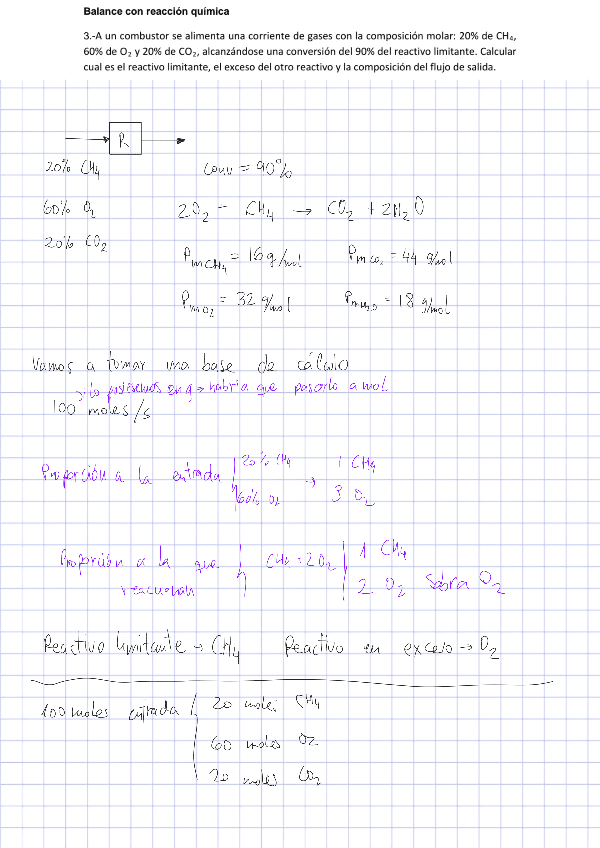 Balance con reacción química
3.-A un combustor se alimenta una corriente de gases con la composición molar: 20% de CH₄,
60% de O₂ y 20% de CO₂, alcanzándose una conversión del 90% del reactivo limitante. Calcular
cual es el reactivo limitante, el exceso del otro reactivo y la composición del flujo de salida.
R
20% CH₄ conv = 90%
60% O₂ 2O₂ - CH₄ → CO₂ + 2H₂O
20% CO₂
PmCH₄ = 16 g/mol PmCO₂ = 44 g/mol
PmO₂ = 32 g/mol PmH₂O = 18 g/mol
Vamos a tomar una base de cálculo
→ lo pusiésemos en g → habría que pasarlo a mol
100 moles/s
Proporción a la entrada 20% CH₄ → 1 CH₄
60% O₂ 3 O₂
Proporción a la que CH₄ = 2O₂ 1 CH₄
reaccionan 2 O₂ Sobra O₂
Reactivo limitante → CH₄ Reactivo en exceso → O₂
100 moles entrada 20 moles CH₄
60 moles O₂
20 moles CO₂